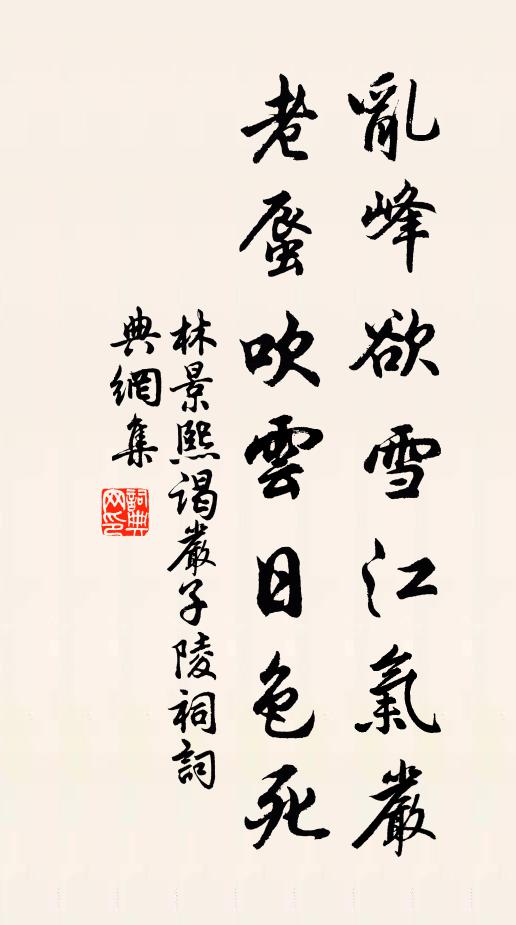 亂峰欲雪江氣嚴
老蜃吹雲日色死
林景熙謁嚴子陵祠詞
典網集
詞典
网印